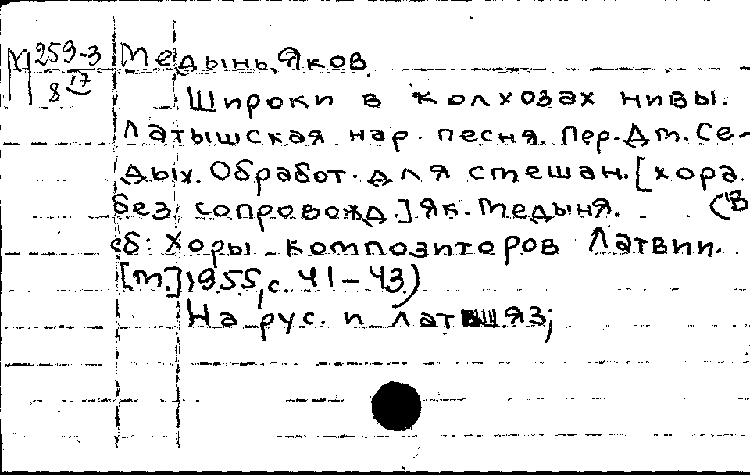 М 259-3 Медынь, Яков.
8 IV
Широки в колхозах нивы.
Латышская нар. песня. Пер. Дм. Се-
дых. Обработ. для смешан. [хора
без сопровожд.] Як. Медыня. (В
сб: Хоры композиторов Латвии.
[М.] 1955, с. 41-43)
На рус. и латыш яз;